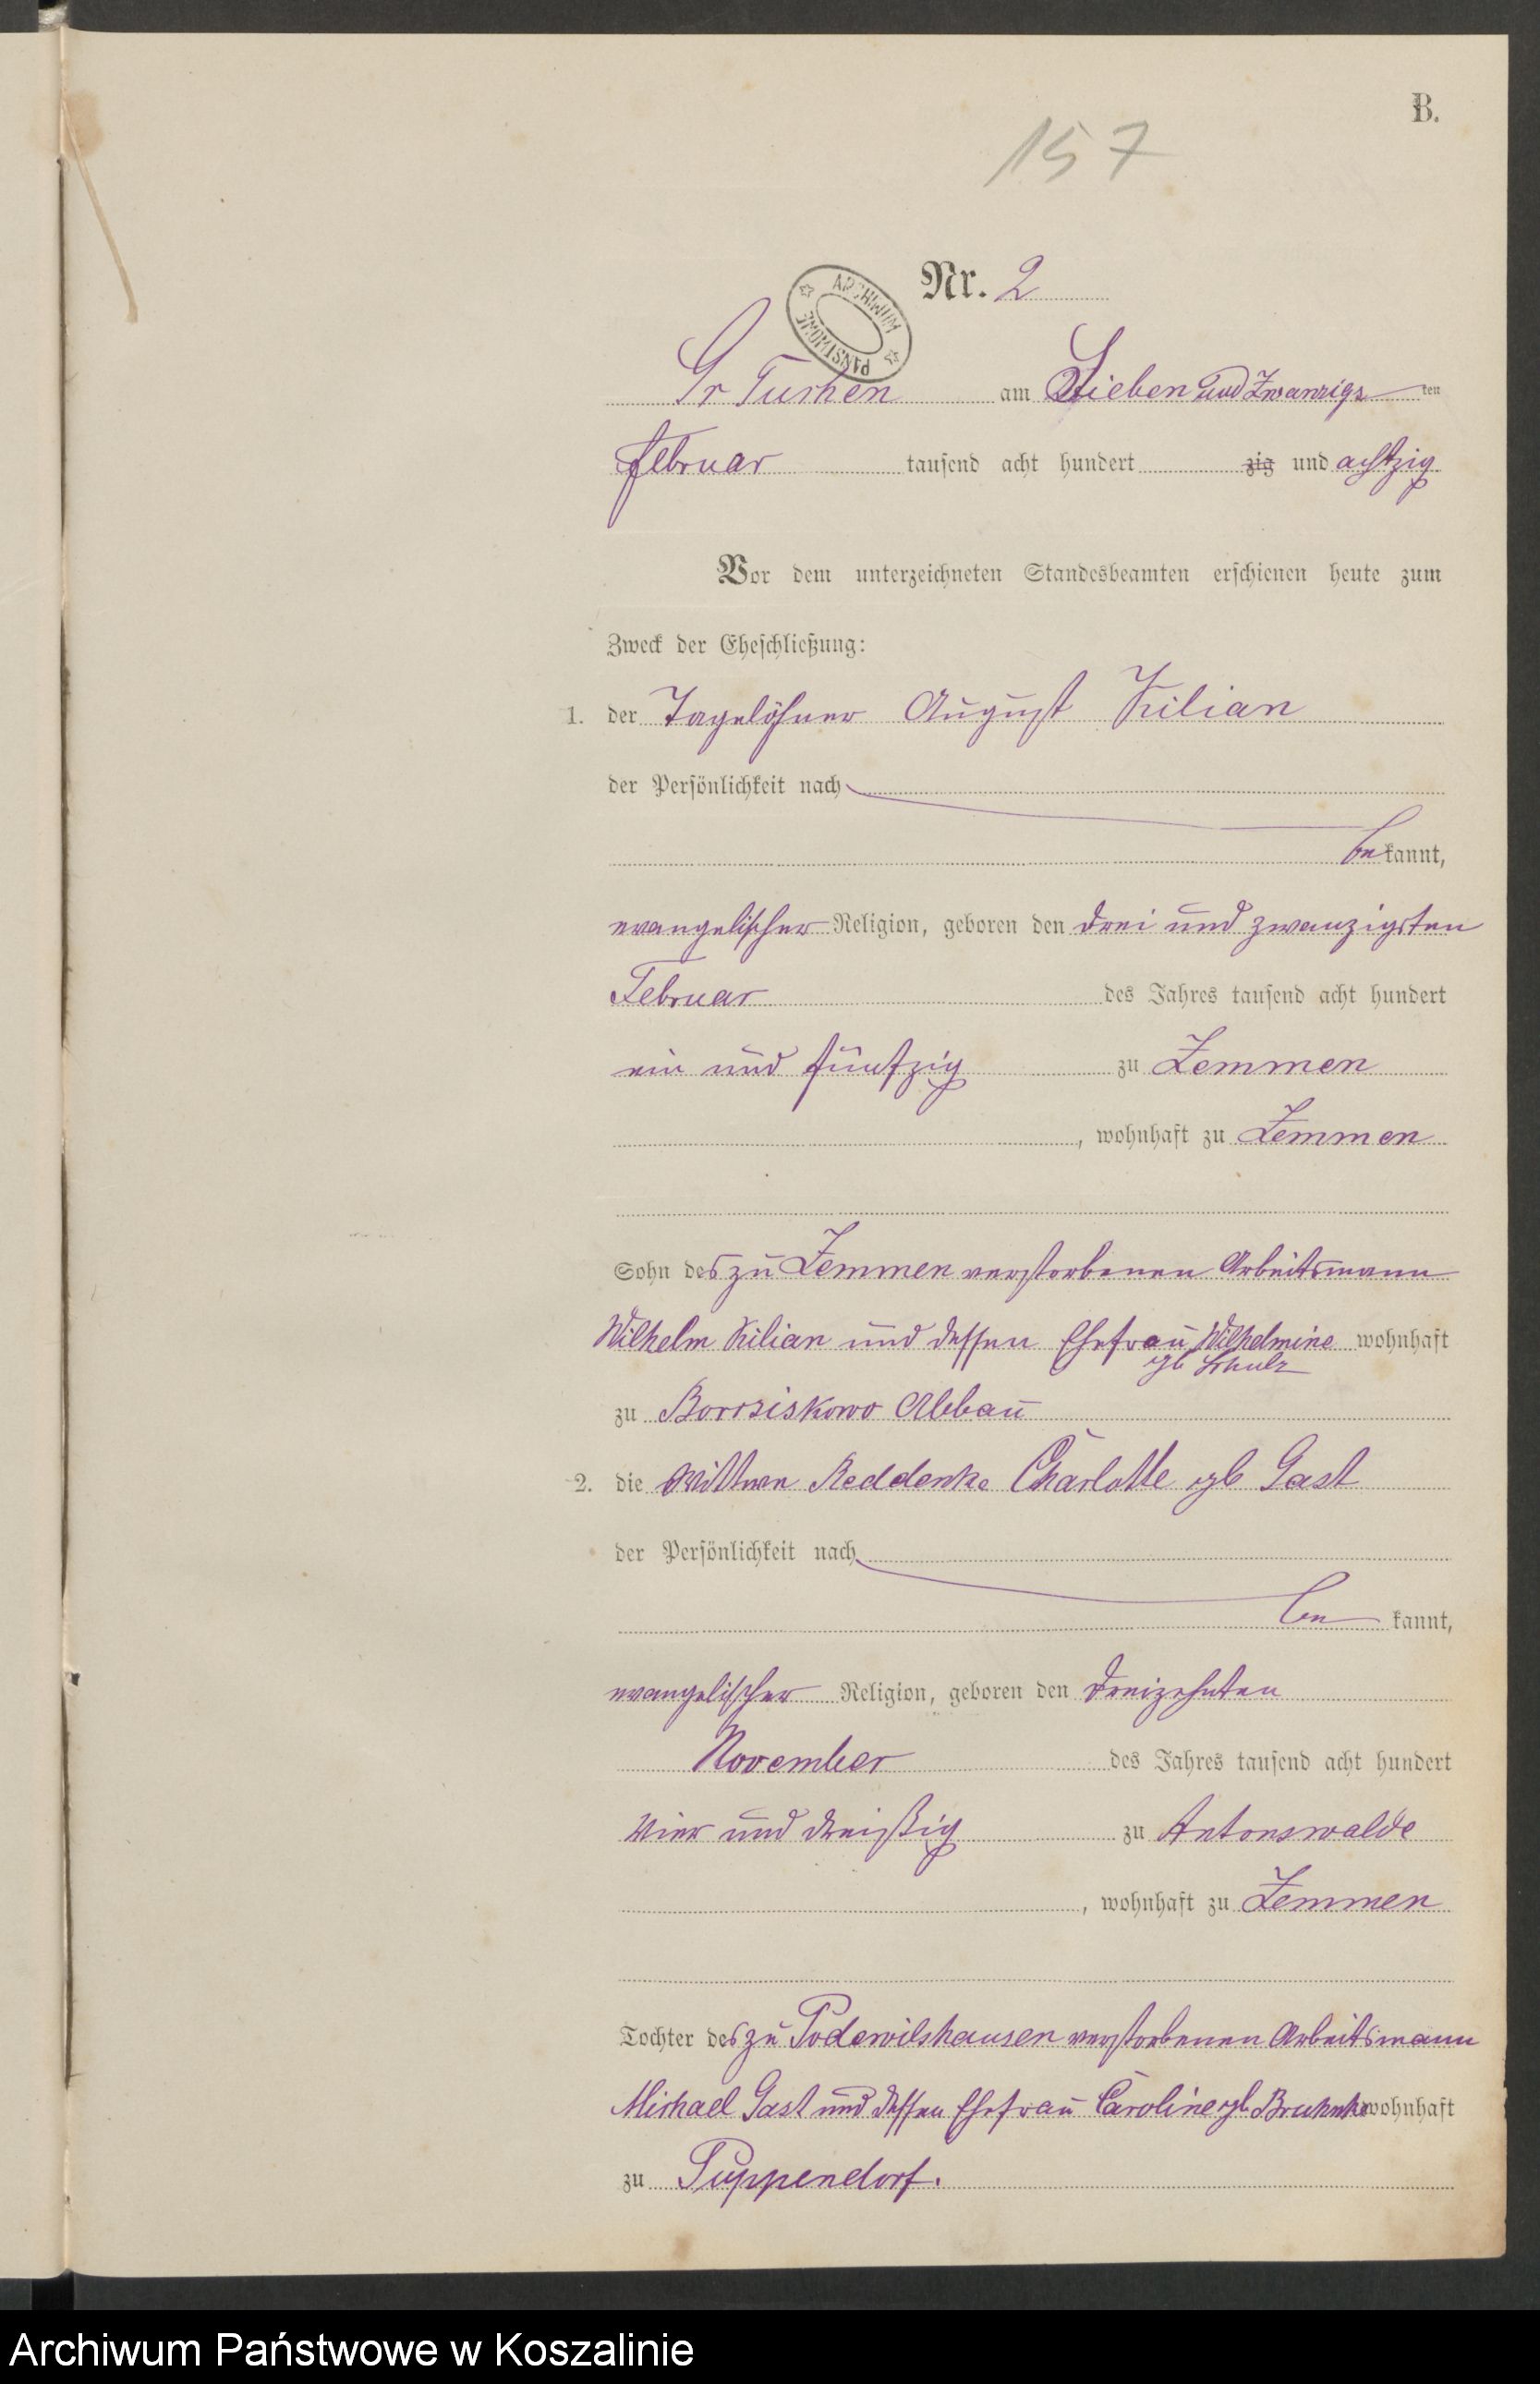 B.
157
Nr. 2
ARCHIWUM PAŃSTWOWE
Gr Tuchen am Sieben und Zwanzigs ten
Februar tausend acht hundert zig und achtzig
Vor dem unterzeichneten Standesbeamten erschienen heute zum
Zweck der Eheschließung:
1. der Tagelöhner August Kilian
der Persönlichkeit nach
be kannt,
evangelischer Religion, geboren den drei und zwanzigsten
Februar des Jahres tausend acht hundert
ein und fünfzig zu Zemmen
, wohnhaft zu Zemmen
Sohn des zu Zemmen verstorbenen Arbeitsmann
Wilhelm Kilian und dessen Ehefrau Wilhelmine wohnhaft
gb Schulz
zu Borrsiskowo Abbau
2. die Wittwe Reddenke Charlotte gb Gast
der Persönlichkeit nach
be kannt,
evangelischer Religion, geboren den dreizehnten
November des Jahres tausend acht hundert
vier und dreißig zu Antonswalde
, wohnhaft zu Zemmen
Tochter des zu Podewilshausen verstorbenen Arbeitsmann
Michael Gast und dessen Ehefrau Caroline gb wohnhaft
zu Puppendorf.
Archiwum Państwowe w Koszalinie